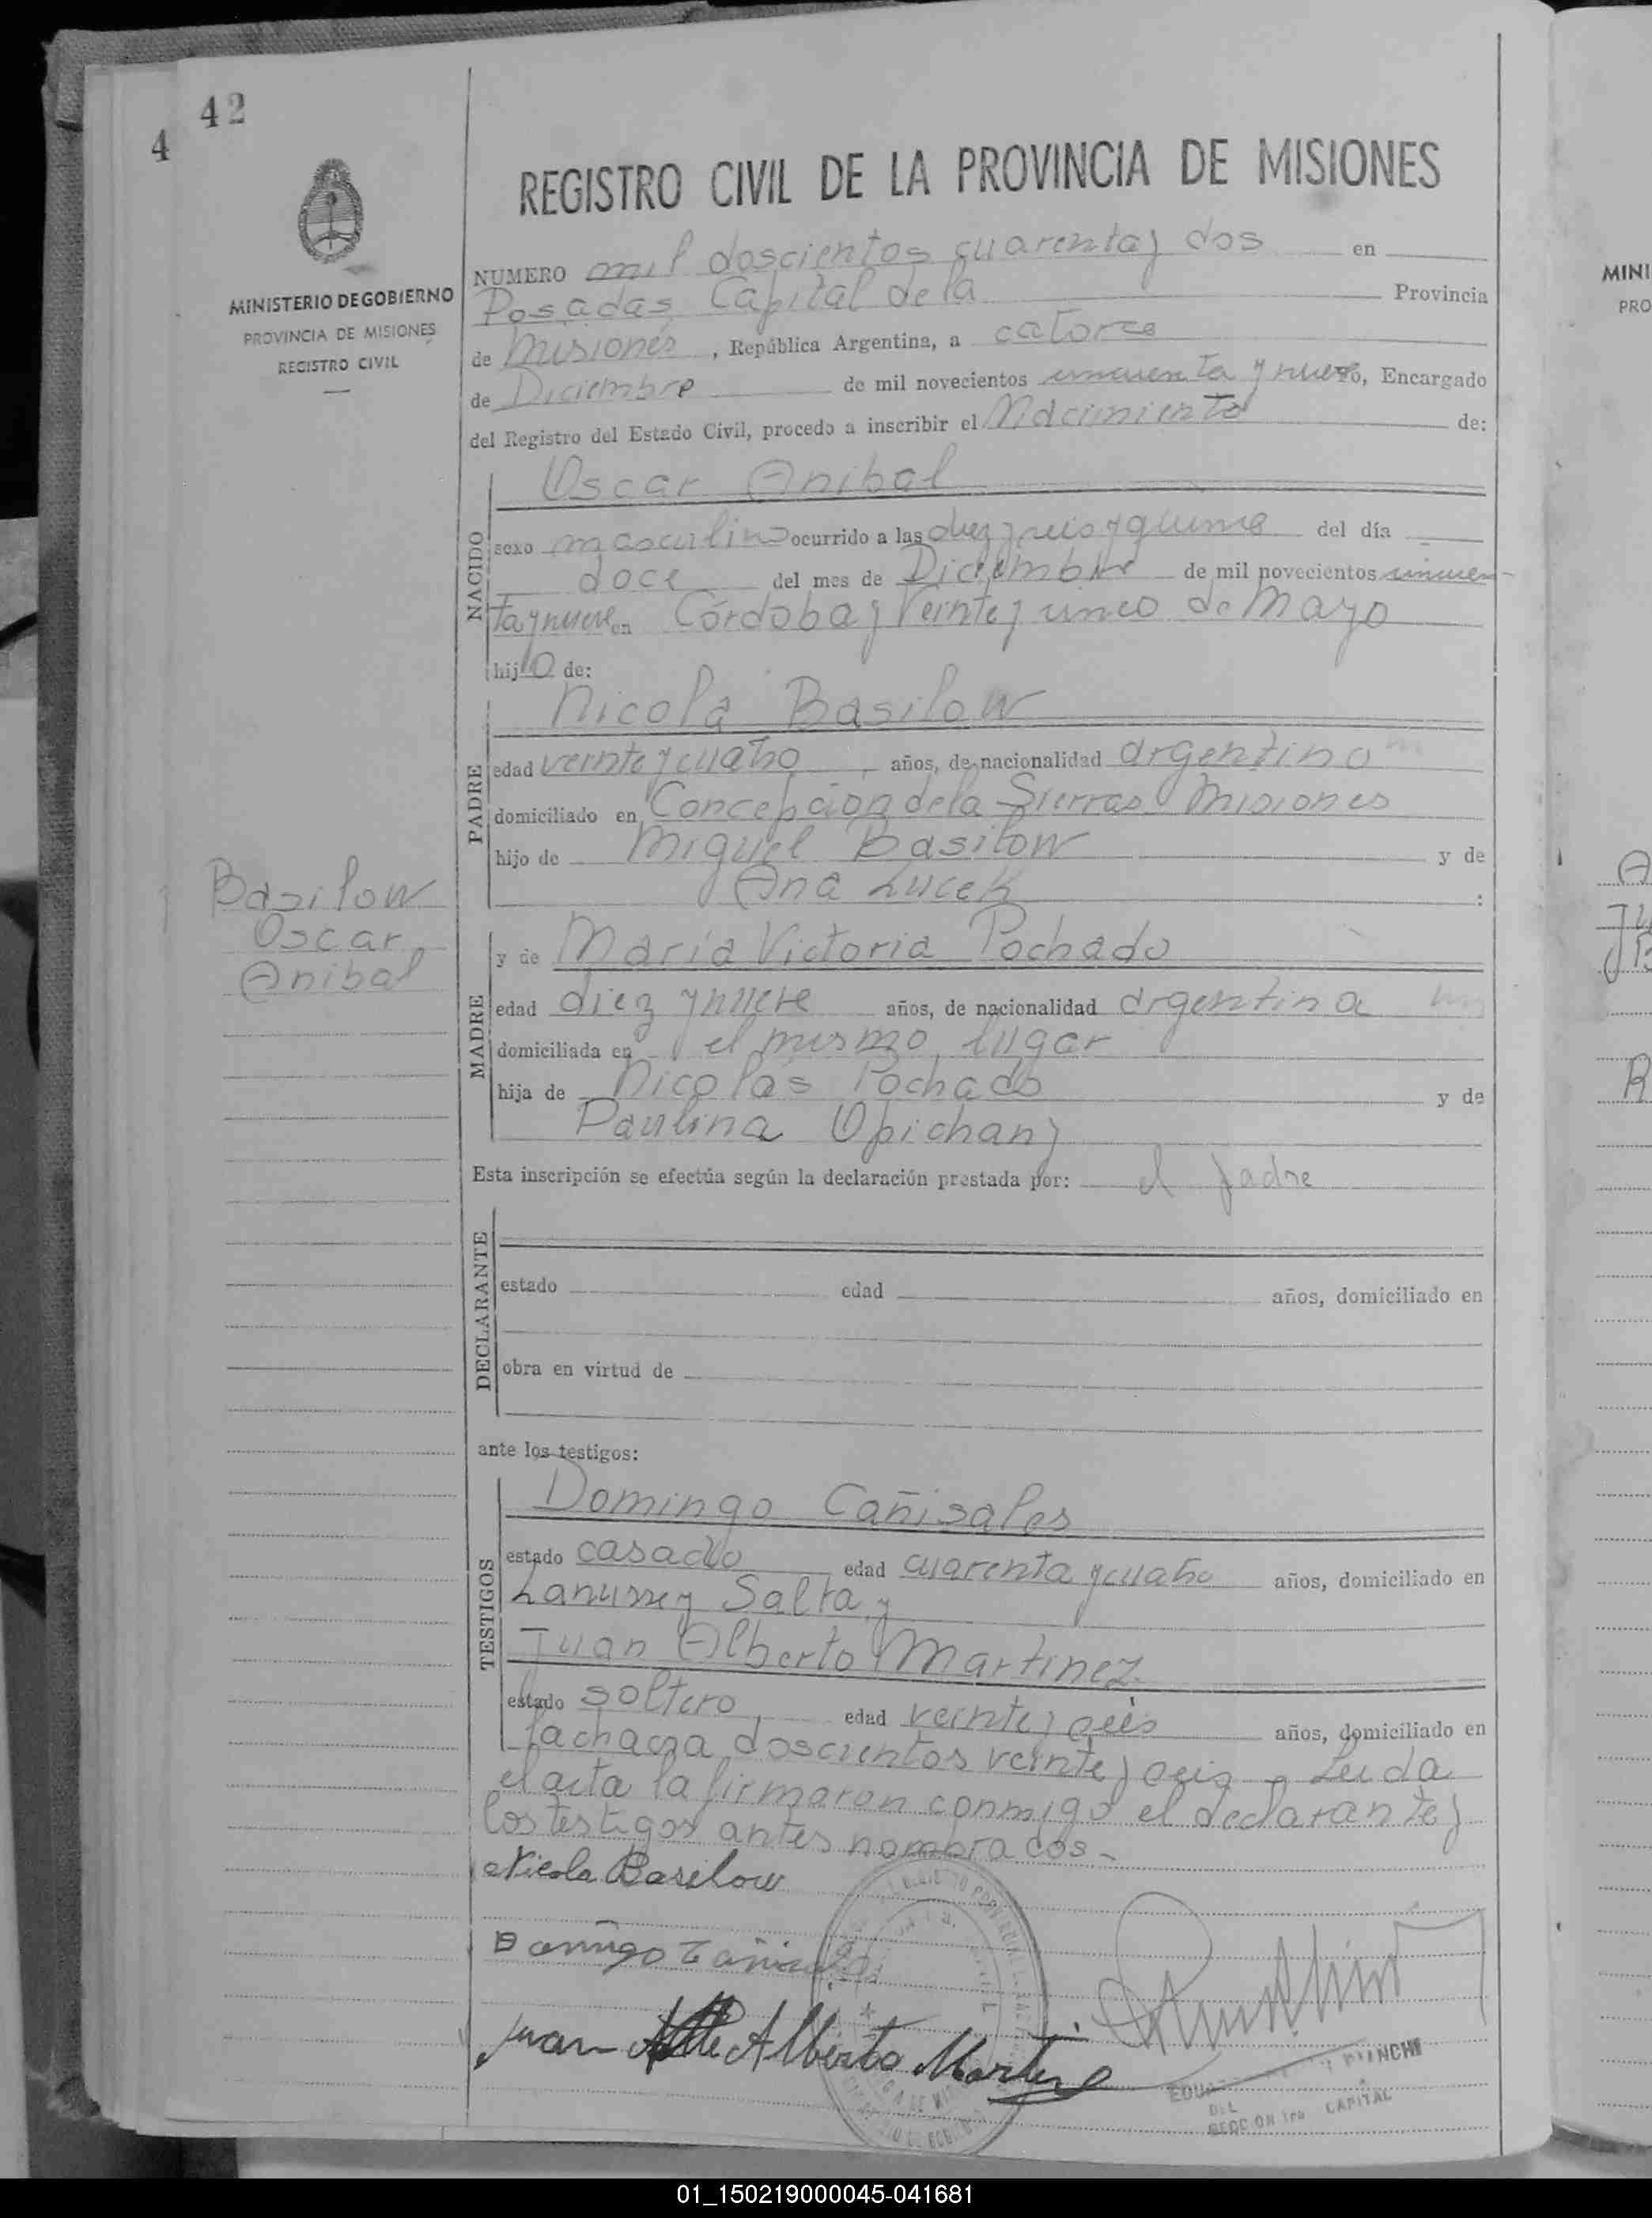 42
4
MINISTERIO DE GOBIERNO
PROVINCIA DE MISIONES
REGISTRO CIVIL
Basilow
Oscar
Anibal
REGISTRO CIVIL DE LA PROVINCIA DE MISIONES
NUMERO mil doscientos cuarenta y dos en
Posadas Capital de la Provincia
de Misiones, República Argentina, a catorce
de Diciembre de mil novecientos cincuenta y nueve, Encargado
del Registro del Estado Civil, procedo a inscribir el Nacimiento de:
Oscar Anibal
NACIDO
sexo masculino ocurrido a las diez y seis y quince del día
doce del mes de Diciembre de mil novecientos cincuen-
ta y nueve en Córdoba y Veinte y cinco de Mayo
hijo de:
Nicola Basilow
PADRE
edad veinte y cuatro años, de nacionalidad argentino
domiciliado en Concepcion de la Sierras Misiones
hijo de Miguel Basilow y de
Ana Lucek
MADRE
y de María Victoria Pochado
edad diez y nueve años, de nacionalidad argentina
domiciliada en el mismo lugar
hija de Nicolás Pochado y de
Paulina Opichany
Esta inscripción se efectúa según la declaración prestada por: el padre
DECLARANTE
estado edad años, domiciliado en
obra en virtud de
ante los testigos:
TESTIGOS
Domingo Cañisales
estado casado edad cuarenta y cuatro años, domiciliado en
Lanusse y Salta y
Juan Alberto Martinez
estado soltero, edad veinte y seis años, domiciliado en
la chacra doscientos veinte y seis - Leida
el acta la firmaron conmigo el declarante y
los testigos antes nombrados -
Nicola Basilow
Domingo
Juan Alberto Martinez
SECCION 1ra CAPITAL
MINI
PRO
01_150219000045-041681